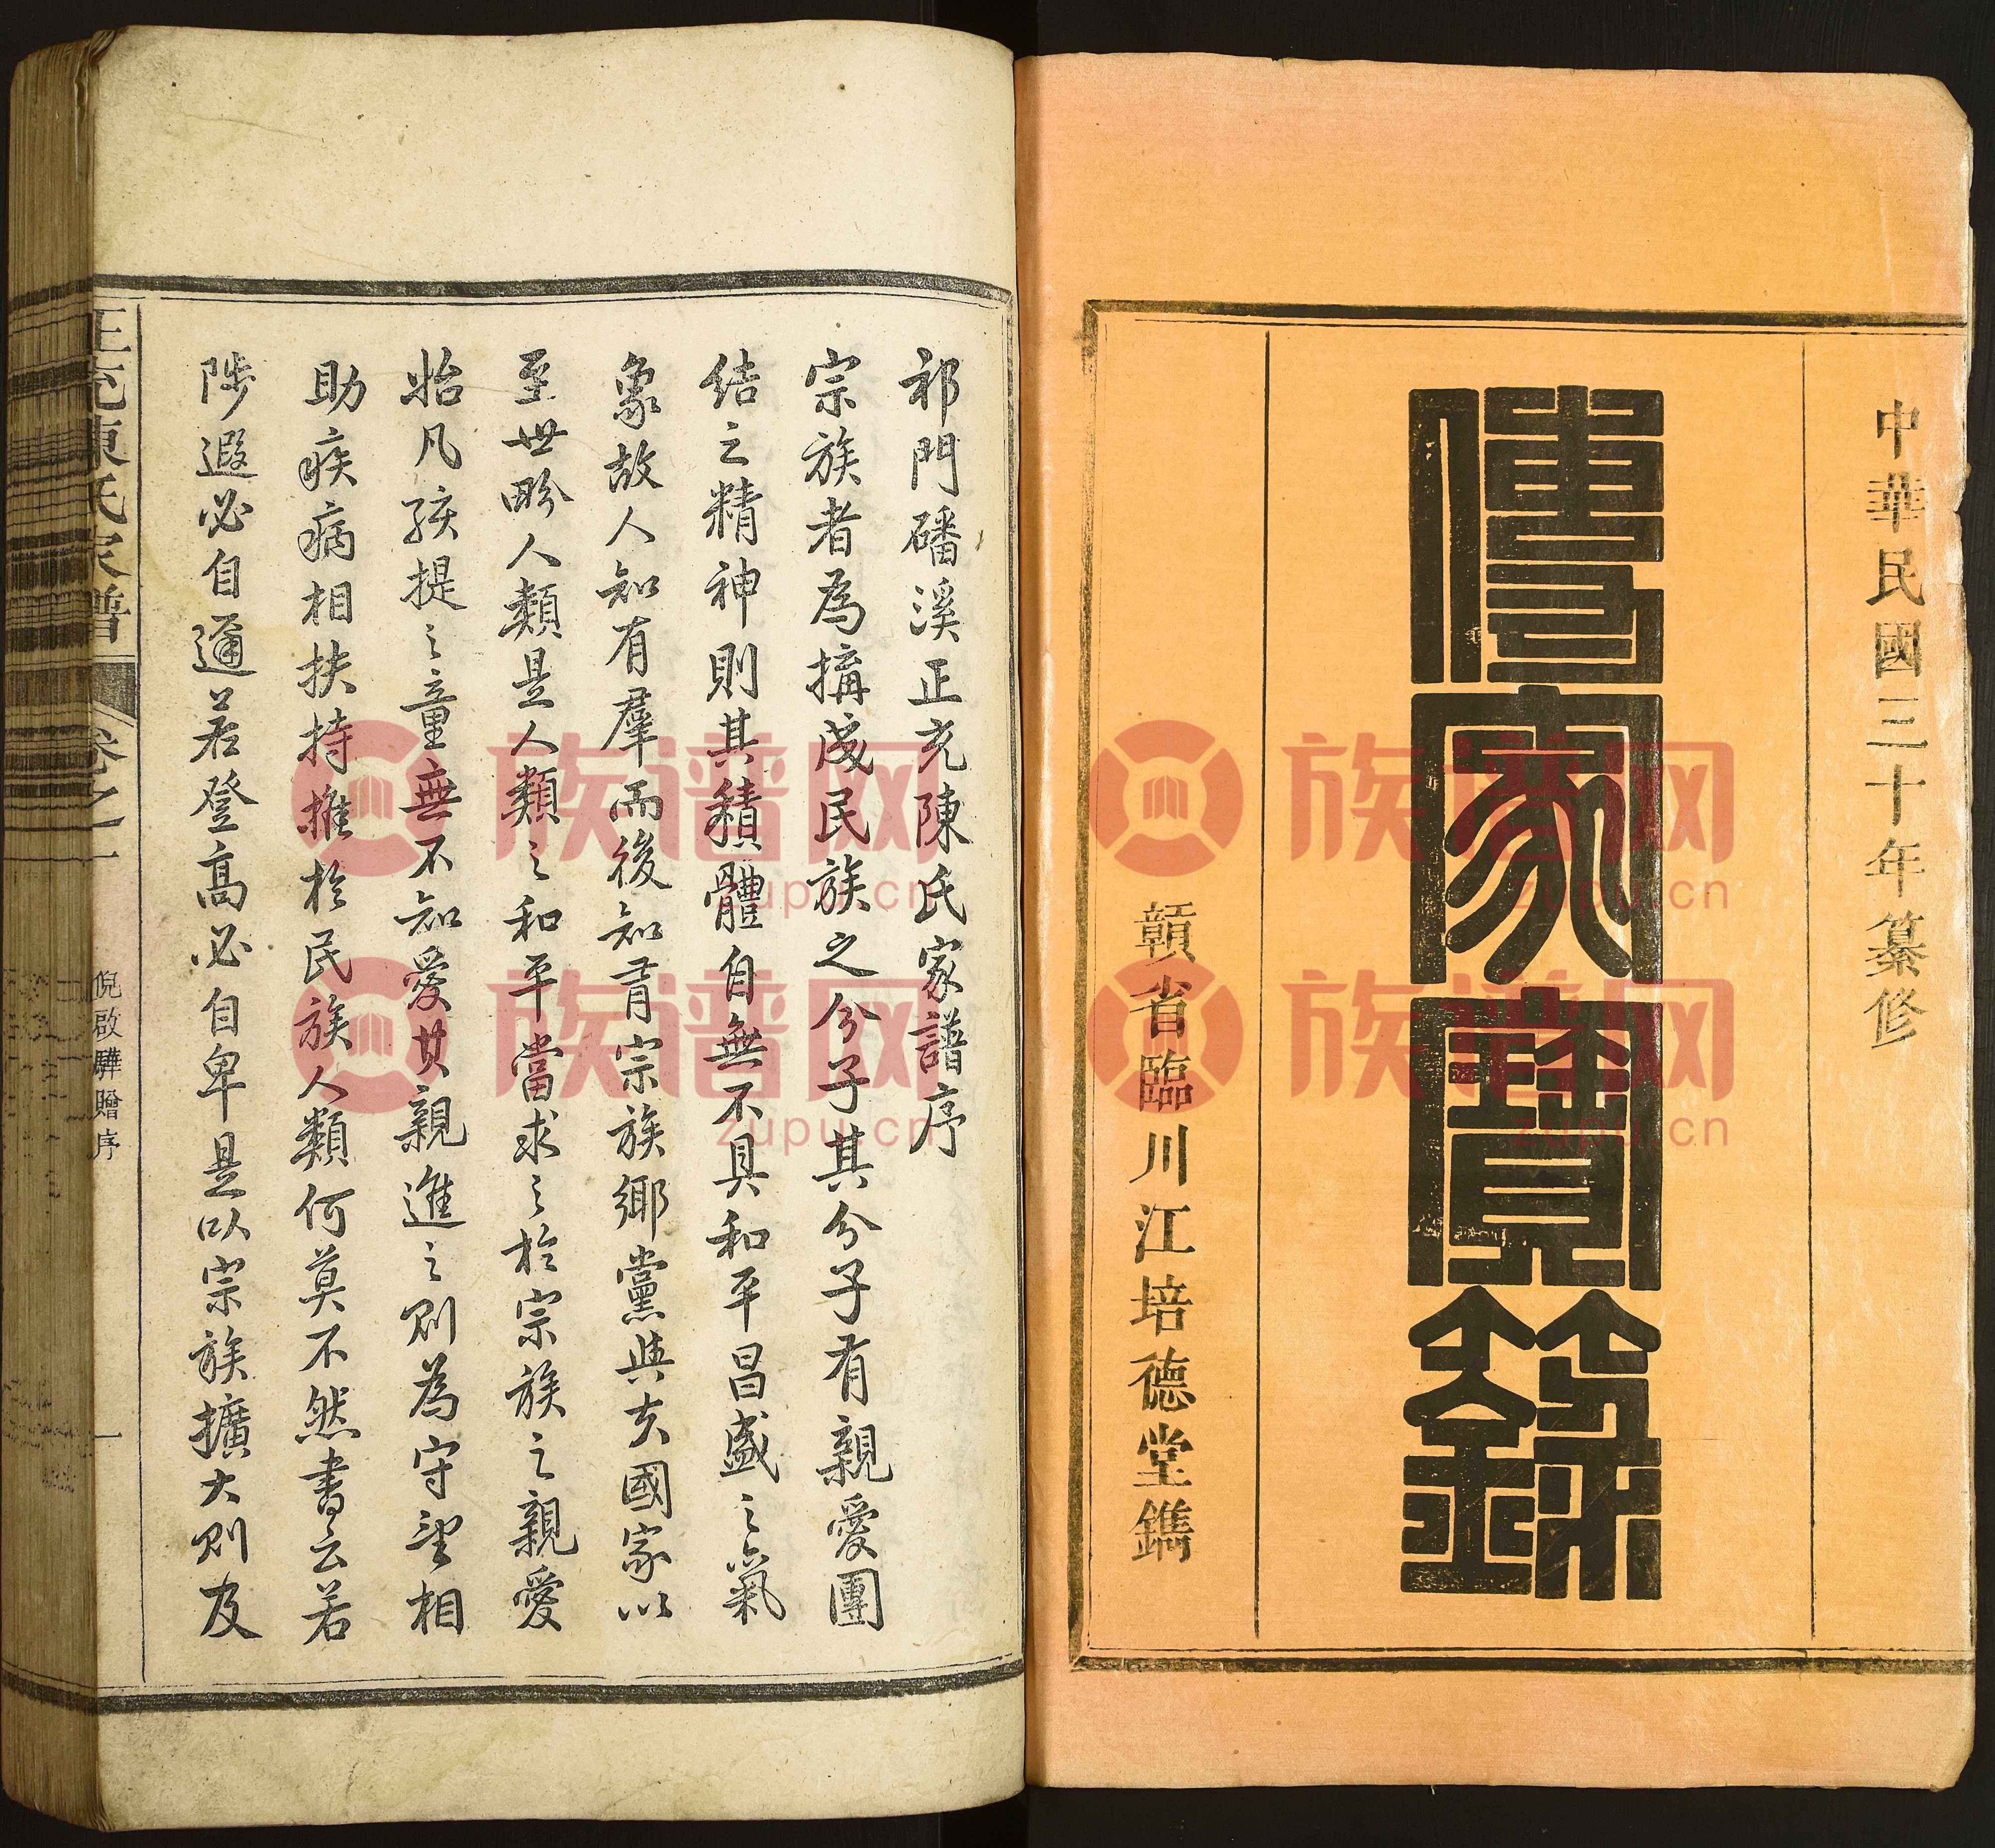 中華民國三十年纂修
傳家寶錄
贛省臨川江培德堂鐫
祁門磻溪正充陳氏家譜序
宗族者為搆成民族之分子其分子有親愛團
結之精神則其積體自無不具和平昌盛之氣
象故人知有羣而後知有宗族鄉黨與夫國家以
至世畍人類是人類之和平當求之於宗族之親愛
始凡孩提之童無不知愛其親進之則為守望相
助疾病相扶持推於民族人類何莫不然書云若
陟遐必自邇若登高必自卑是以宗族擴大則及
正充陳氏家譜
卷之一
倪啟驊贈序
一
族谱网
zupu.cn
族谱网
zupu.cn
族谱网
zupu.cn
族谱网
zupu.cn